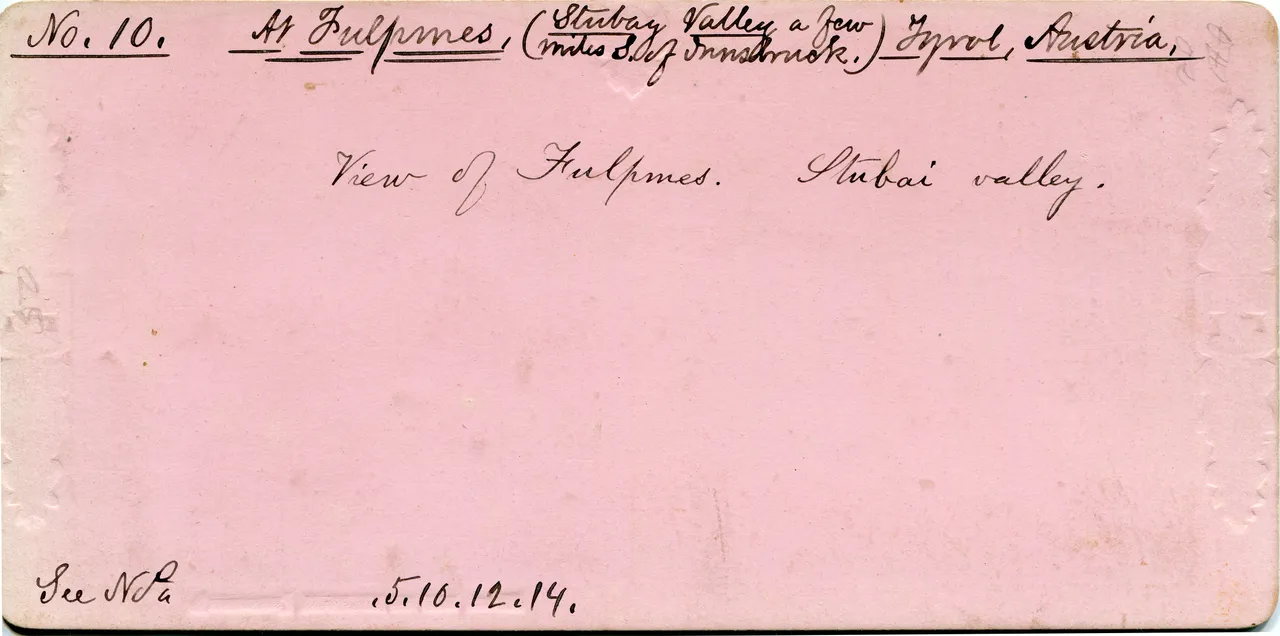 No. 10. At Fulpmes, (Stubay Valley a few miles S. of Innsbruck.) Tyrol, Austria,
View of Fulpmes. Stubai valley.
See Nos .5.10.12.14.